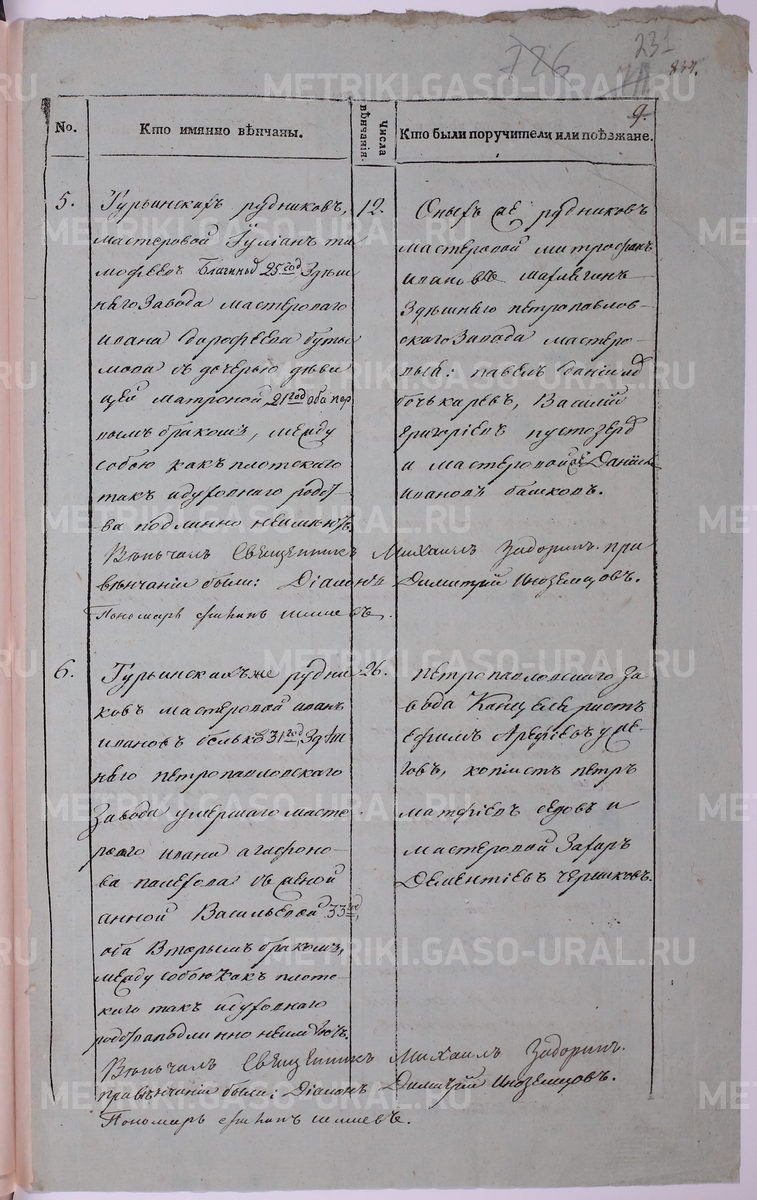 786
231
834.
9.
No.
Кто имянно вѣнчаны.
Числа вѣнчанія.
Кто были поручители или поѣзжане.
5.
Турьинскихъ рудниковъ,
мастеровой Іуліанъ ти
мофеевъ 25 год здѣш
няго завода мастероваго
ивана дорофеева
съ дочерью дѣви
цей матроной 21 год оба пер
вымъ бракомъ, между
собою какъ плотскаго
такъ и духовнаго родст
ва подлинно неимѣютъ.
12.
Оныхъ же рудниковъ
мастеровой митрофанъ
ивановъ
Здѣшняго петропавлов-
скаго завода мастеро-
выя: павелъ даніиловъ
бочкаревъ, Василій
григоріевъ пустозеровъ
и мастеровой же Даніилъ
ивановъ башковъ.
Вѣнчалъ Священникъ Михаилъ Задоринъ. при
вѣнчаніи были: Діаконъ Димитрій Иноземцовъ.
Пономарь
6.
Турьинскихъ же рудни
ковъ мастеровой иванъ
ивановъ 31 год, здѣш
няго петропавловскаго
завода умершаго масте
роваго ивана агафоно-
ва съ женой
анной Васильевой 33 год,
оба вторымъ бракомъ,
между собою какъ плотс-
каго такъ и духовнаго
родства подлинно неимѣютъ.
26.
Петропавловскаго за
вода Канцеляристъ
ефимъ Арефьевъ
копіистъ петръ
матфіевъ седовъ и
мастеровой Захаръ
Дементіевъ
Вѣнчалъ Священникъ Михаилъ Задоринъ.
при вѣнчаніи были: Діаконъ Димитрій Иноземцовъ.
Пономарь
METRIKI.GASO-URAL.RU